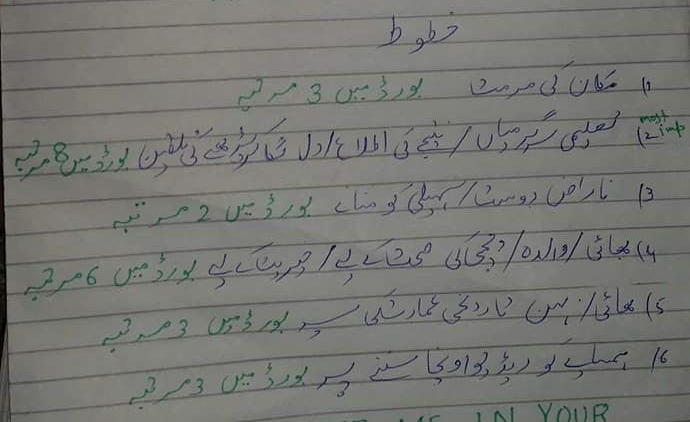 خطوط
1) مکان کی مرمت بورڈ میں 3 مرتبہ
2) تعلیمی سرگرمیاں / نتیجے کی اطلاع / دل لگا کر پڑھنے کی تلقین بورڈ میں 8 مرتبہ most imp
3) ناراض دوست / سہیلی کو منانے بورڈ میں 2 مرتبہ
4) بھائی / والدہ / چچی کی صحت کے لیے / کے لیے بورڈ میں 6 مرتبہ
5) بھائی / بہن تاریخی عمارت کی سیر بورڈ میں 3 مرتبہ
6) ہمسایے کو ریڈیو اونچا سننے پر بورڈ میں 3 مرتبہ
ME IN YOUR